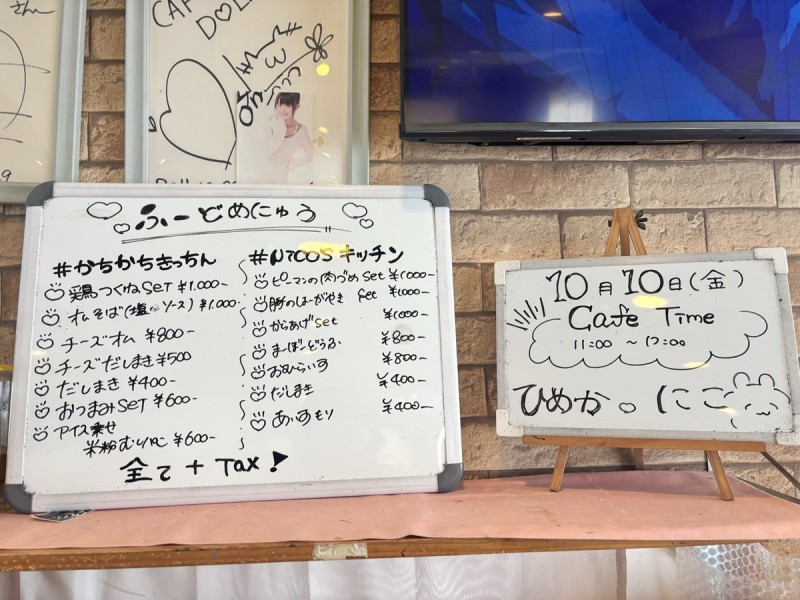 さん
CAF
DOLL
9
ふーどめにゅう
#かちかちきっちん
鶏つくねSET ¥1.000-
オムそば(塩・ソース) ¥1.000-
チーズオム ¥800-
チーズだしまき ¥500
だしまき ¥400-
おつまみSET ¥600-
アイス乗せ
米粉むりんご ¥600-
#NTCOSキッチン
ピーマンの肉づめ Set ¥1000-
豚のしょーがやき Set ¥1000-
からあげset ¥1000-
まーぼーどうふ ¥800-
おむらいす ¥800-
だしまき ¥400-
あいすもり ¥400-
全て + Tax!
10月10日(金)
Cafe Time
11:00 ~ 17:00
ひめか。にこ